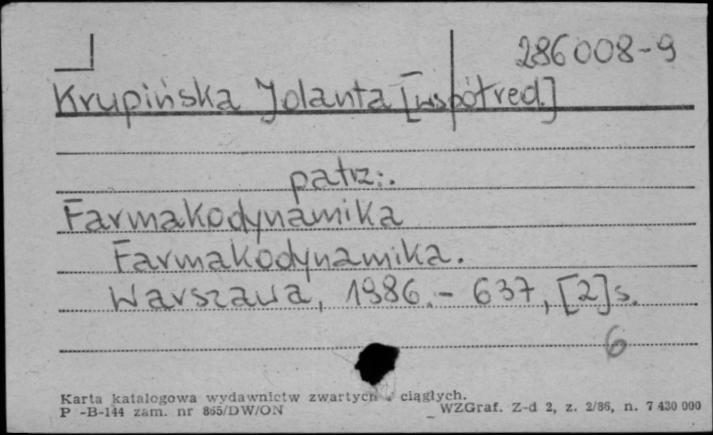 286008-9
Krupińska Jolanta [współred.]
patrz:.
Farmakodynamika
Farmakodynamika.
Warszawa, 1986.- 637, [2]s.
6
Karta katalogowa wydawnictw zwartych ciągłych.
P -B-144 zam. nr 865/DW/ON WZGraf. Z-d 2, z. 2/86, n. 7 430 000